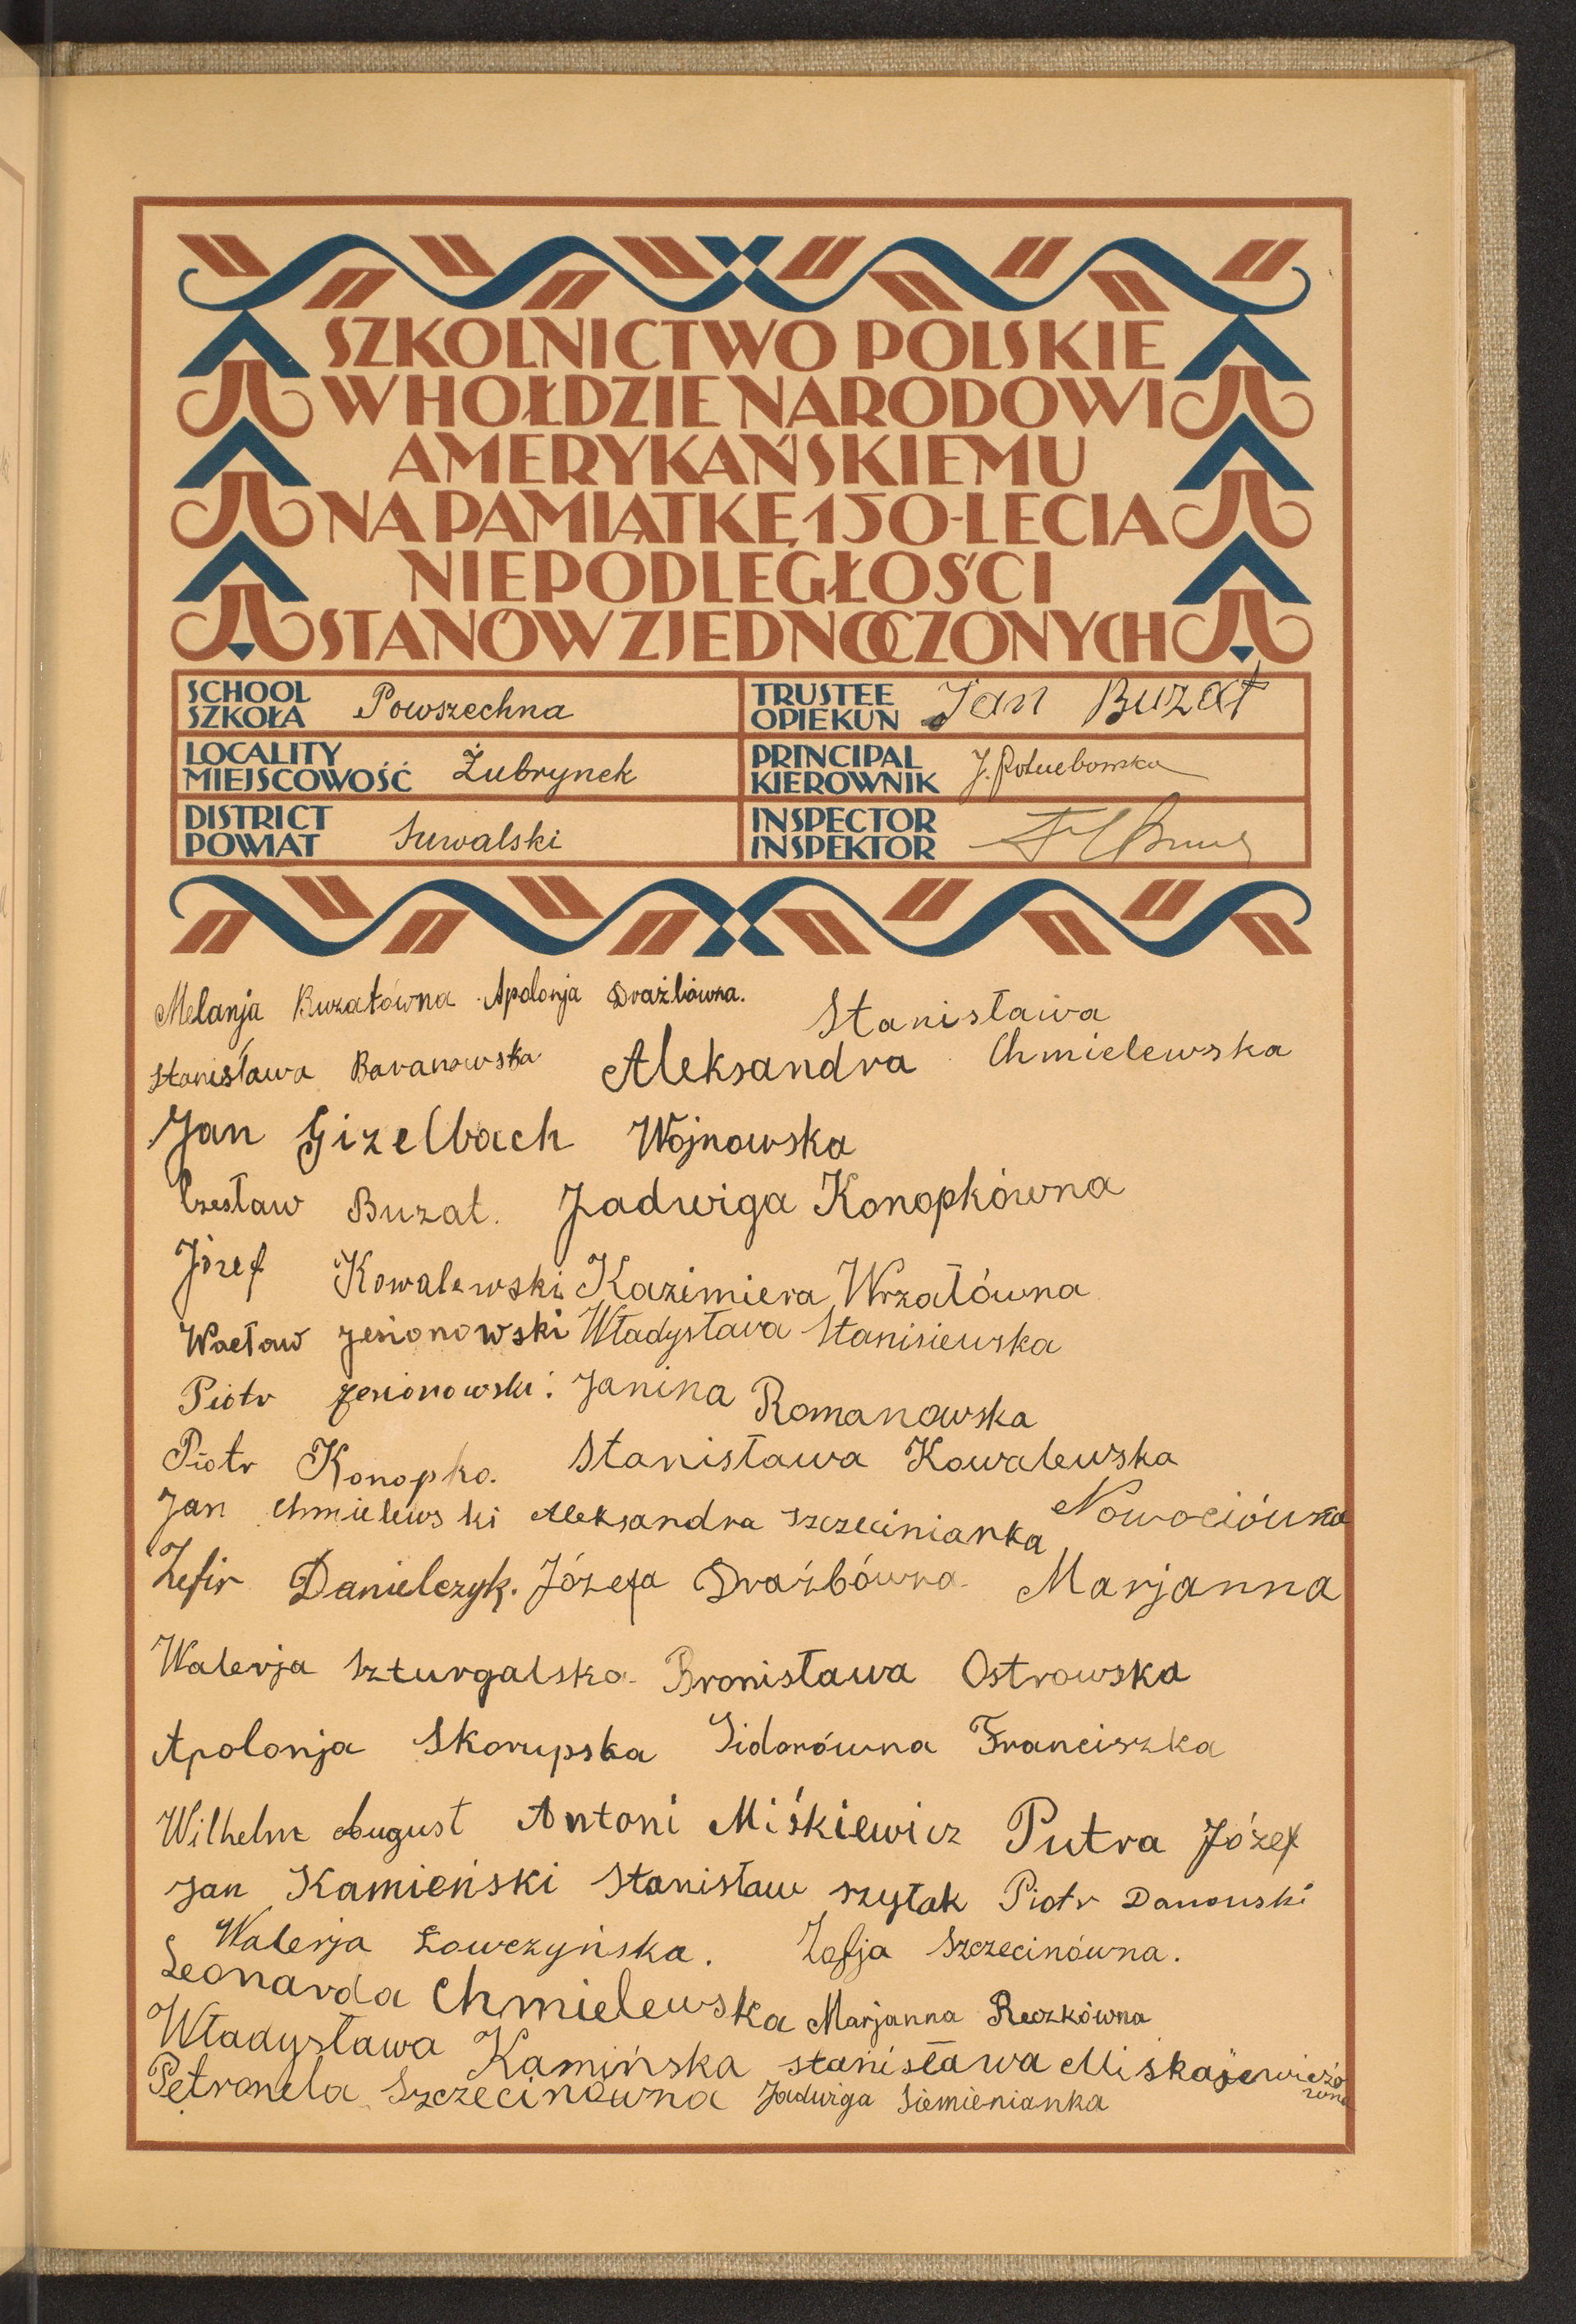 SZKOLNICTWO POLSKIE
W HOŁDZIE NARODOWI
AMERYKAŃSKIEMU
NA PAMIĄTKĘ 150-LECIA
NIEPODLEGŁOŚCI
STANÓW ZJEDNOCZONYCH
SCHOOL
SZKOŁA
Powszechna
TRUSTEE
OPIEKUN
Jan Buzat
LOCALITY
MIEJSCOWOŚĆ
Żubrynek
PRINCIPAL
KIEROWNIK
DISTRICT
POWIAT
Suwalski
INSPECTOR
INSPEKTOR
Melanja Buzatówna Apolonja Drażbówna.
Stanisława Chmielewska
Stanisława Baranowska
Aleksandra Wojnowska
Jan Gizelbach
Czesław Buzat. Jadwiga Konopkówna
Józef Kowalewski Kazimiera Wrzatówna
Wacław Jesionowski Władysława Stanisiewska
Piotr Jesionowski. Janina Romanowska
Piotr Konopko. Stanisława Kowalewska
Jan Chmielewski Aleksandra Szczecinianka
Nowociówna Marjanna
Zefir Danielczyk. Józefa Drażbówna
Walerja Szturgalska Bronisława Ostrowska
Apolonja Skorupska Sidorówna Franciszka
Wilhelm August Antoni Miśkiewicz Putra Józef
Jan Kamieński Stanisław Szyłak Piotr Danowski
Walerja Łowczyńska. Zofja Szczecinówna.
Leonarda Chmielewska Marjanna Reczkówna
Władysława Kamińska Stanisława Miskajewiczówna
Petronela Szczecinówna Jadwiga Siemienianka